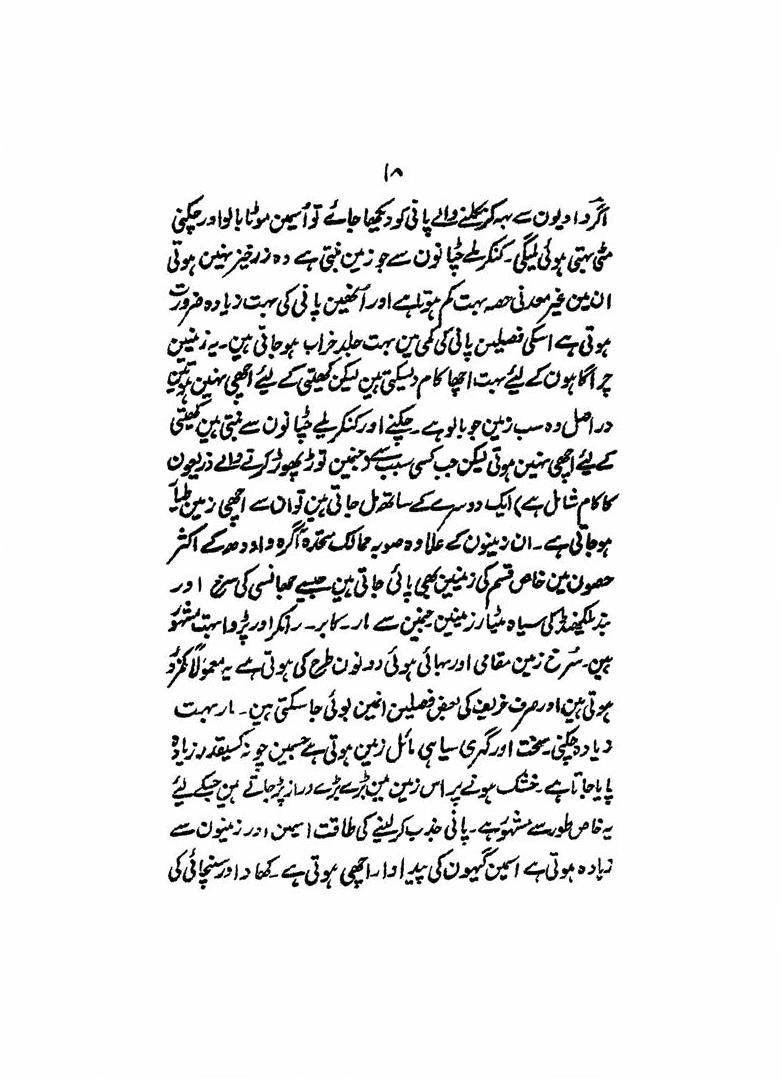 ۱۸
اگر دادیون سے بہہ کر نکلنے والے پانی کو دیکھا جائے تو اُسمین موٹا بالو اور چکنی
مٹی بہتی ہوئی ملیگی۔ کنکریلے چٹانون سے جو زمین بنتی ہے وہ زرخیز نہین ہوتی
ان مین غیر معدنی حصہ بہت کم ہوتا ہے اور اُنھین پانی کی بہت زیادہ ضرورت
ہوتی ہے اسکی فصلین پانی کی کمی مین بہت جلد خراب ہو جاتی ہین۔ یہ زمینین
چراگاہون کے لیئے بہت اچھا کام دیسکتی ہین لیکن کھیتی کے لیئے اچھی نہین ہوتین
دراصل وہ سب زمین جو بالو ہے۔ چکنے اور کنکریلے چٹانون سے بنتی ہین کھیتی
کے لیئے اچھی نہین ہوتی لیکن جب کسی سبب سے (جنمین توڑ پھوڑ کرنے والے ذریعون
کا کام شامل ہے) ایک دوسرے کے ساتھ مل جاتی ہین تو ان سے اچھی زمین طیار
ہو جاتی ہے۔ ان زمینون کے علاوہ صوبہ ممالک متحدہ آگرہ و اودھ کے اکثر
حصون مین خاص قسم کی زمینین بھی پائی جاتی ہین جیسے جھانسی کی سرخ اور
بندیلکھنڈ کی سیاہ مٹیار زمینین جنمین سے مار۔ کابر۔ رانکر اور پڑوا بہت مشہور
ہین۔ سُرخ زمین مقامی اور بہائی ہوئی دونون طرح کی ہوتی ہے یہ معمولاً کمزور
ہوتی ہین اور صرف خریف کی بعض فصلین انمین بوئی جا سکتی ہین۔ مار بہت
زیادہ چکنی سخت اور گہری سیاہی مائل زمین ہوتی ہے جسمین چونہ کسیقدر زیادہ
پایا جاتا ہے۔ خشک ہونے پر اس زمین مین بڑے بڑے دراز پڑ جاتے ہین جسکے لیئے
یہ خاص طور سے مشہور ہے۔ پانی جذب کرلینے کی طاقت اسمین اور زمینون سے
زیادہ ہوتی ہے اسمین گیہون کی پیداوار اچھی ہوتی ہے۔ کھاد اور سنچائی کی